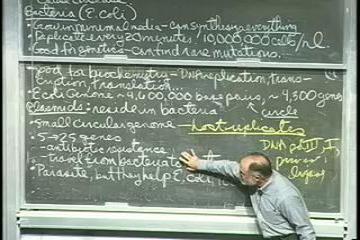 Bacteria (E. Coli)
• Grow in minimal media - can synthesize everything
• Replicate every 20 minutes / 10,000,000 cells/mL.
• Good for genetics - can find rare mutations...
• Good for biochemistry - DNA replication, trans-
cription, translation...
• E. coli Genome ~ 4,100,000 base pairs, ~ 4,300 genes
circle
Plasmids: reside in bacteria
• Small circular genome - host replicates
• 5→25 genes
- antibiotic resistance
- travel from bacteria to
• Parasite, but they help E. coli
DNA pol III, I,
primase,
ligase